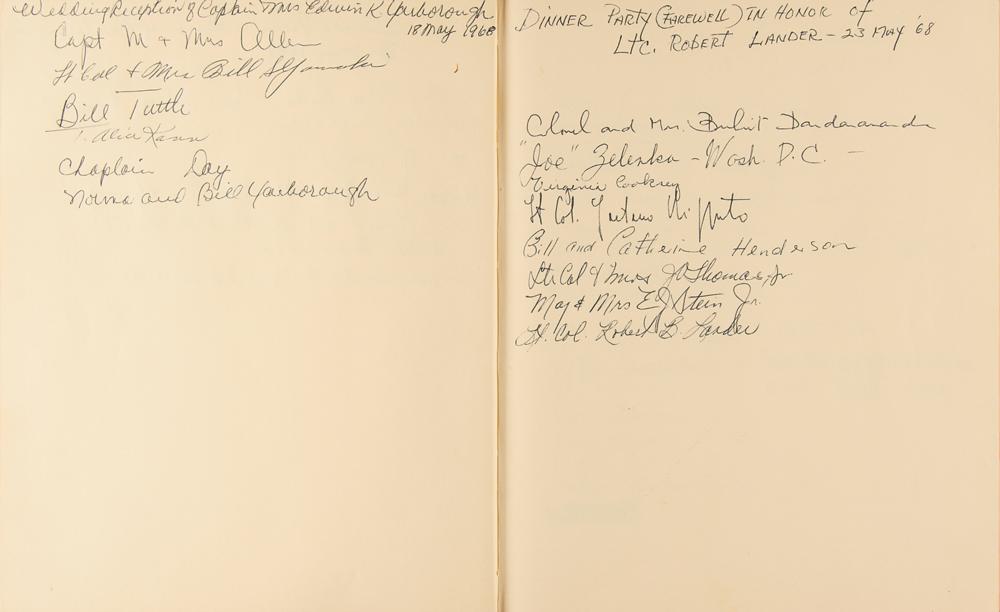 Wedding Reception of Captain & Mrs Edwin K Yarborough
18 May 1968
Capt M + Mrs Allen
Lt Col + Mrs Bill
Bill Tuttle
Alice
Chaplain Day
Norma and Bill Yarborough
DINNER PARTY (FAREWELL) IN HONOR of
LTC. ROBERT LANDER - 23 MAY '68
Colonel and Mrs.
"Joe" Zelenka - Wash. D.C. -
Virginia Cooksey
Lt Col. Gaetano
Bill and Catherine Henderson
Lt Col & Mrs JD Thomas, Jr.
Maj & Mrs EJ Stein Jr.
Lt. Col. Robert B. Lander